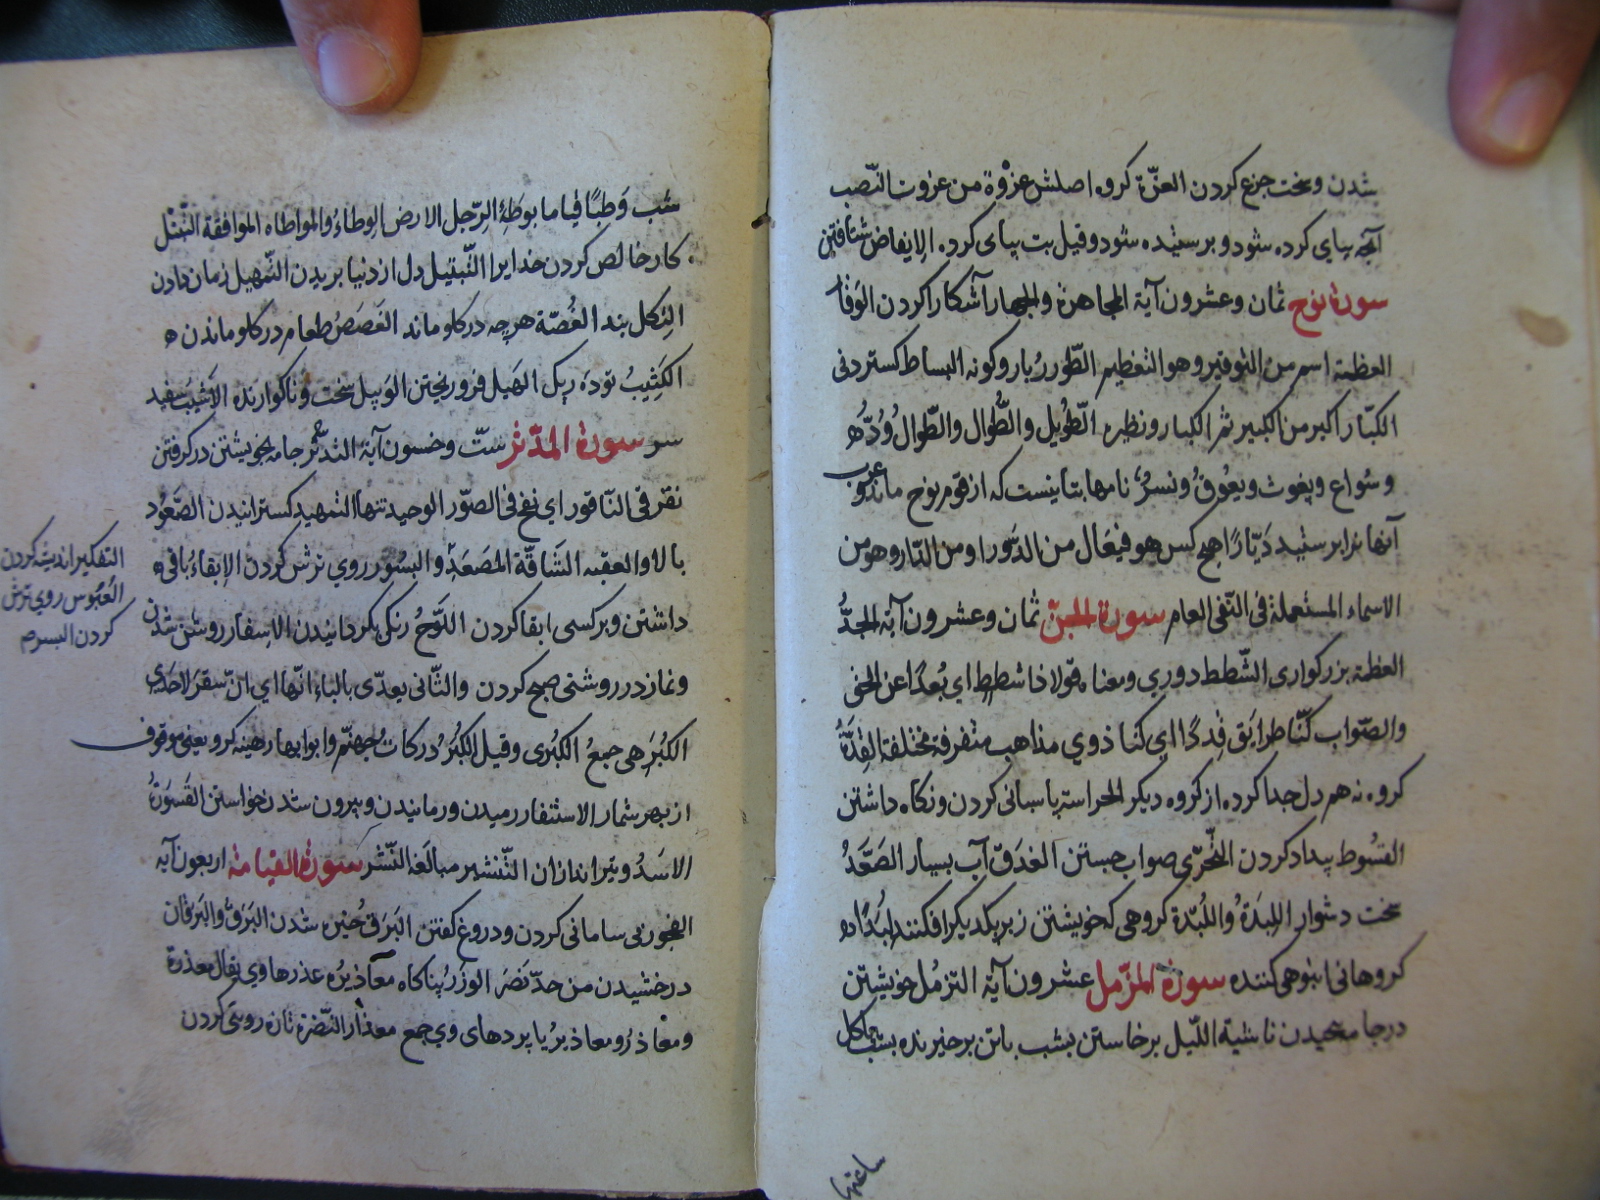 شدن و سخت جزع كردن العزّة كروه اصلش عزوة من عزوت النّصب
آنچه بپای كرده شود و برستیده شود و قیل بت بپای كرده الایفاض شتافتن
سورة نوح ثمان و عشرون آیة المجاهرة والجهار آشكارا كردن الوَقار
العظمة اسم من التوقیر وهو التعظیم الطّور ربار و كونه البساط كستردنی
الكبّار اكبر من الكبیر ثم الكبار و نظیره الطّویل والطُّوال والطّوال وُدّ
و سُواع و یغوث و یعُوقُ و نسرُ نامها بتانیست كه از قوم نوح ماند عرب
آنها برابرستید دَیّارًا هیچ كس هو فیعال من الدَّور او من الدّار وهو من
الاسماء المستعملة فی النّفی العام سورة الجنّ ثمان و عشرون آیة الجدُّ
العظمة بزركواری الشّطط دوری و معناه قولا ذا شطط ای بُعدٍ عن الحق
والصّواب كنّا طرایق قِدَدًا ای كنا ذوی مذاهب متفرقة مختلفة القِدَّةُ
كروه نه هم دل جدا كرده از كروه دیكر الحراسة پاسبانی كردن و نكاه داشتن
القسُوط بیداد كردن التّحرّی صواب جستن الغدَق آب بسیار الصَعَدُ
سخت دشوار اللِبدَةُ واللُبدَة كروهی كه خویشتن زبر یكدیكر افكنند لُبَدًا
كروهانی انبوهی كننده سورة المزّمل عشرون آیة التزمّل خویشتن
در جامه پیچیدن ناشیة اللّیل برخاستن بشب باتن برخیزنده بشب
ساعتها
شب وَطئًا قیاما بوَطئةِ الرّجل الارض الوِطاءُ والمواطاه الموافقة التبتّل
كار خالص كردن خدایرا التّبتیل دل از دنیا بریدن التّمهیل زمان دادن
النِكل بند الغُصّة هرچه در كلو ماند الغَصَصُ طعام در كلو ماندن
الكَثِیبُ تودَه ریك الهَیل فرو ریختن الوَبیل سخت و ناكوارنده الاشیَبُ سفید
سر سورة المدّثر ستّ و خمسون آیة التدثّر جامه بخویشتن در كرفتن
نقر فی النّاقور ای نفخ فی الصّور الوحید تنها التمهید كسترانیدن الصَّعُود
بالا والعقبة الشّاقّة المَصعَد والبسُور روی ترش كردن الإبقاءُ باقی
داشتن و بر كسی ابقا كردن اللَوّحُ رنكی بكردانیدن الاسفار روشن شدن
و نماز در روشنی صبح كردن والثّانی یعدّی بالباء انّها ای انّ سقر لاحدی
الكُبَر هی جمعُ الكبُری و قیل الكُبَرُ دركات جهنّم و ابوابها رهینة كرو یعنی موقوف
از بهر شمار الاستنفار رمیدن و رمانیدن و بیرون شدن خواستن القَسوَرَةُ
الاسَدُ و تیراندازان التّنشیر مبالَغة النّشر سورة القیامة اربعون آیة
الفجُور بی سامانی كردن و دروغ كفتن البَرَق خیره شدن البَرَقُ والبَرَقان
درخشیدن من حدّ نَصَرَ الوزَرُ پناكاه معاذیرُه عذرها وی یقال معذرة
و معاذرُ و معاذیرُ یا پردهای وی جمع معذار النّضرة تازه رویی كردن
التفكیر اندیشه كردن
العُبُوس روی ترش
كردن البسرم